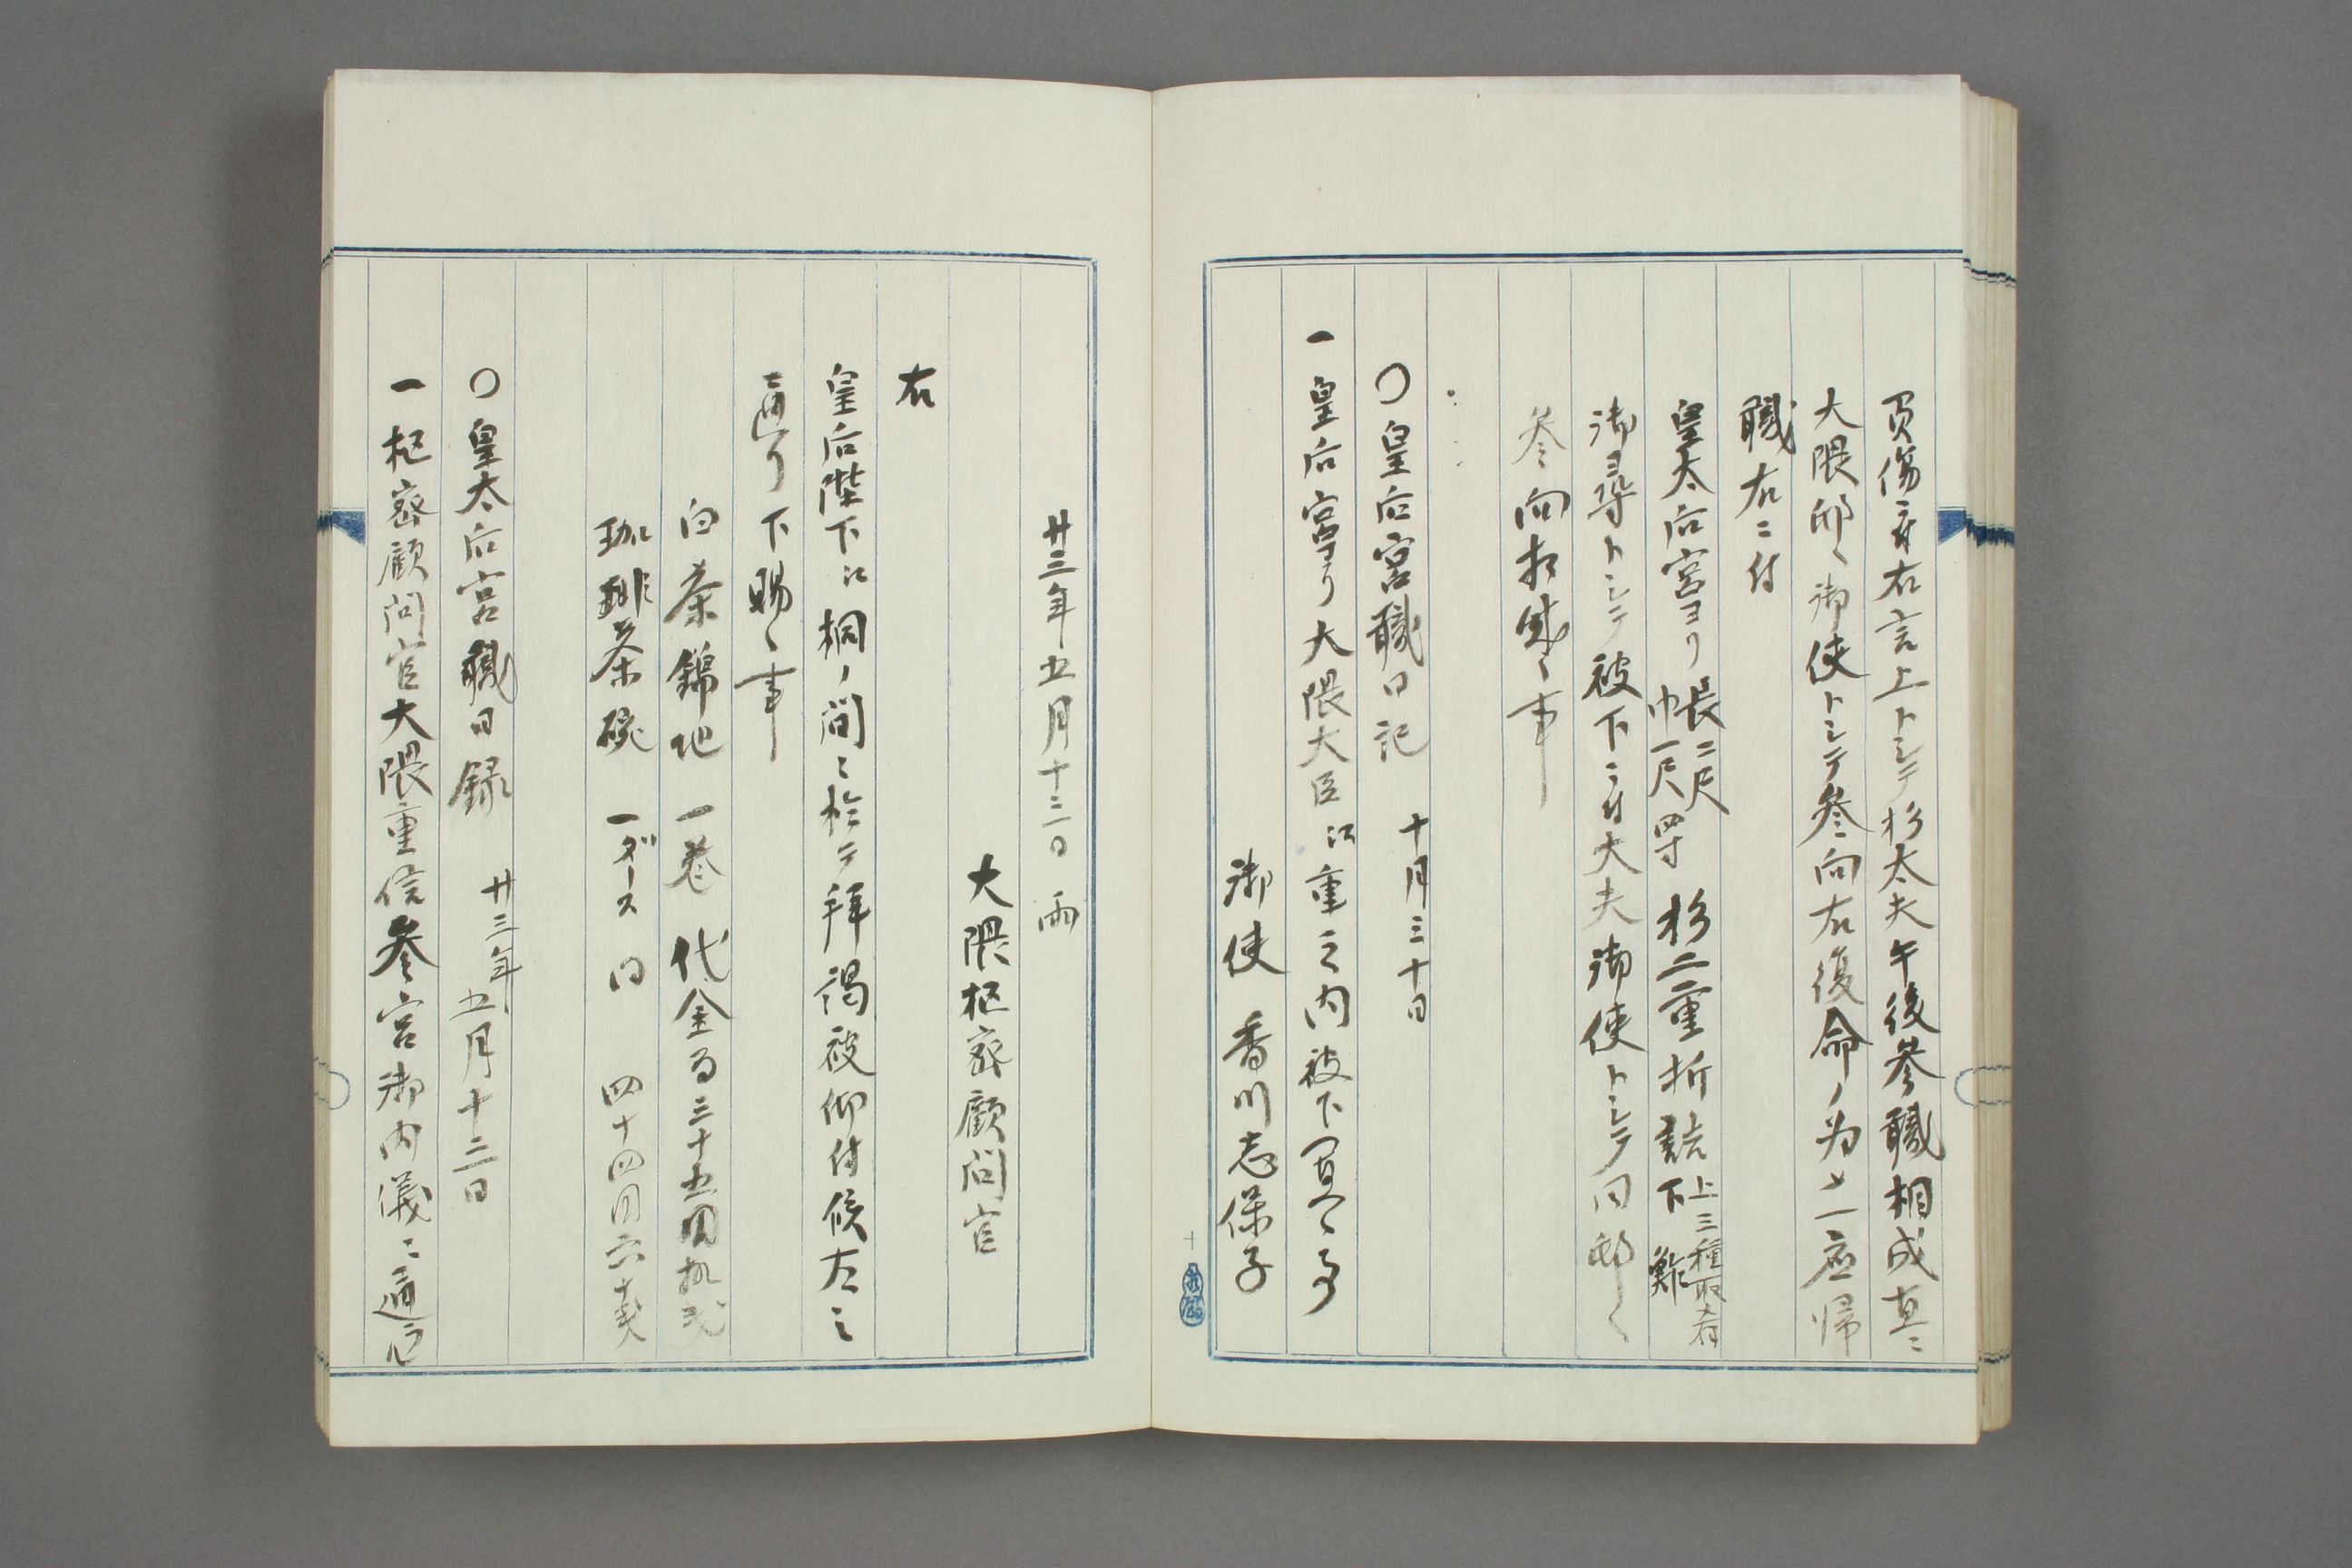 負傷ニ付右言上トシテ杉太夫午後参職相成直ニ
大隈邸ヘ御使トシテ参向右復命ノ为メ一应帰
職右ニ付
皇太后宮ヨリ 長二尺 巾一尺四寸 杉二重折詰 上三種取肴 下鮓
御尋トシテ被下ニ付大夫御使トシテ同邸ヘ
参向相成候事
〇皇后宮職日記 十月三十日
一皇后宮ヨリ大隈大臣江重之内被下
御使 香川志保子
廿三年五月十三日 雨
大隈枢密顧問官
右
皇后陛下江桐ノ間ニ於テ拝謁被仰付候左之
通り下賜候事
白茶錦地 一巻 代金三十五円
珈琲茶碗 一ダース 同 四十四円六十銭
〇皇太后宮職日録 廿三年五月十三日
一枢密顧問官大隈重信参宮御内儀ニ通シ